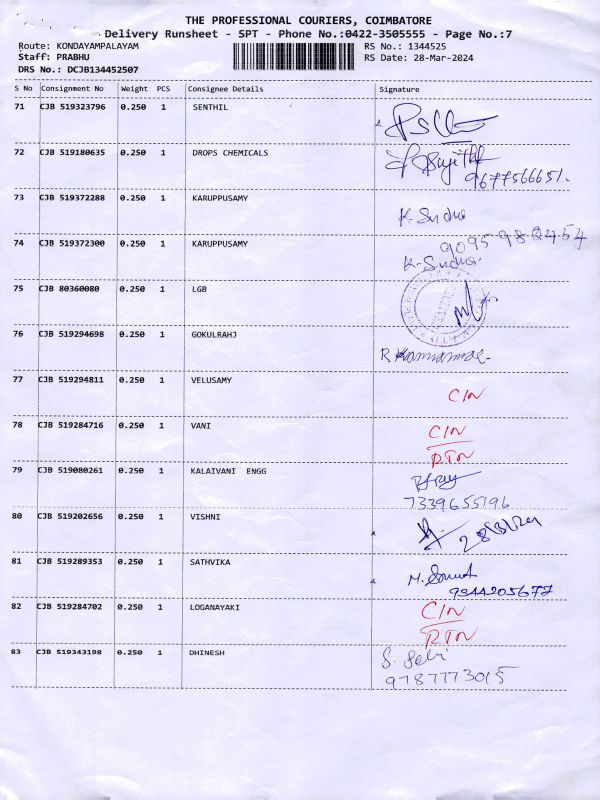 THE PROFESSIONAL COURIERS, COIMBATORE
Delivery Runsheet - SPT - Phone No.:0422-3505555 - Page No.:7
Route: KONDAYAMPALAYAM RS No.: 1344525
Staff: PRABHU RS Date: 28-Mar-2024
DRS No.: DCJB134452507
S No Consignment No Weight PCS Consignee Details Signature
71 CJB 519323796 0.250 1 SENTHIL
72 CJB 519180635 0.250 1 DROPS CHEMICALS
9677566651.
73 CJB 519372288 0.250 1 KARUPPUSAMY
K. Sudha
9095 98 2454
74 CJB 519372300 0.250 1 KARUPPUSAMY
K. Sudha
75 CJB 80360080 0.250 1 LGB
76 CJB 519294698 0.250 1 GOKULRAHJ
77 CJB 519294811 0.250 1 VELUSAMY
C/N
78 CJB 519284716 0.250 1 VANI
C/N
RTN
79 CJB 519080261 0.250 1 KALAIVANI ENGG
7339655196
80 CJB 519202656 0.250 1 VISHNI
28/3/24
81 CJB 519289353 0.250 1 SATHVIKA
9944205677
82 CJB 519284702 0.250 1 LOGANAYAKI
C/N
RTN
83 CJB 519343198 0.250 1 DHINESH
S. Selvi
9787773015